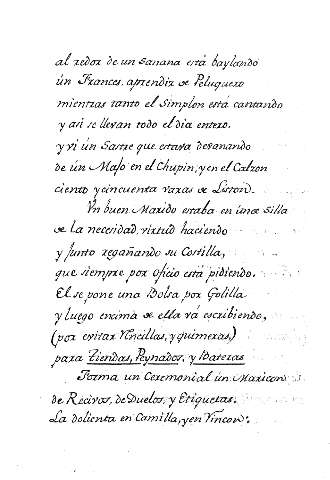 al redor de un banana está baylando
ún Frances, aprendiz de Peluquero
mientras tanto el Simplon está cantando
y asi se llevan todo el dia entero.
y vi ún Sastre que estava devanando
de ún Majo en el Chupin, y en el Calzon
ciento y cincuenta varas de Liston.
Vn buen Marido estaba en úna silla
de la necesidad, virtud haciendo
y Junto regañando su Costilla,
que siempre por oficio está pidiendo.
El se pone una Bolsa por Golilla
y luego encima de ella vá escribiendo,
(por evitar Rencillas, y quimeras,)
para Tiendas, Peynados, y Bateras
Forma un Ceremonial ún Maricon
de Recivos, de Duelos, y Etiquetas.
La dolienta en Camilla, y en Rincon.